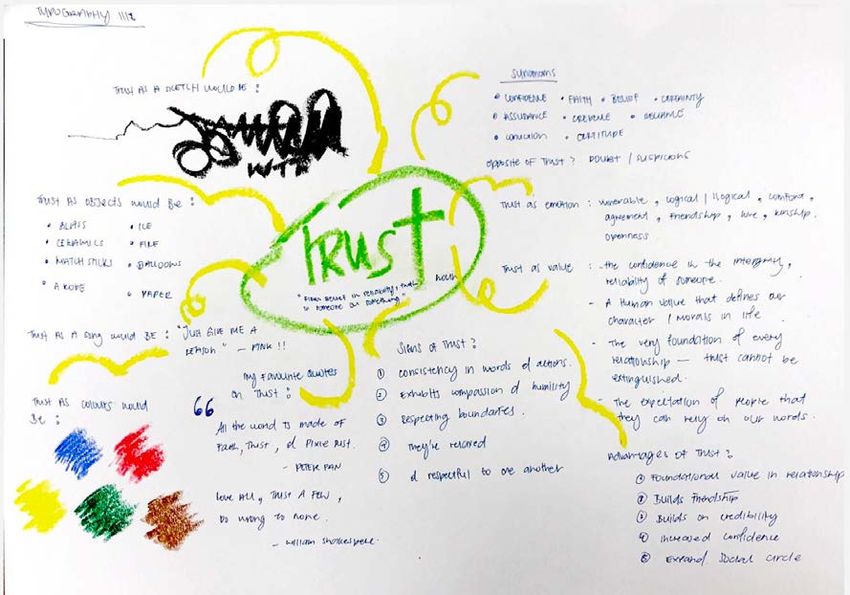 TYPOGRAPHY III
TRUST AS A SKETCH WOULD BE :
TRUST
"FIRM BELIEF IN RELIABILITY, TRUTH
IN SOMEONE OR SOMETHING"
NOUN
SYNONYMS
• CONFIDENCE • FAITH • BELIEF • CERTAINTY
• ASSURANCE • CREDENCE • RELIANCE
• CONVICTION • CERTITUDE
OPPOSITE OF TRUST ? DOUBT / SUSPICIONS
TRUST AS OBJECTS WOULD BE :
• GLASS • ICE
• CERAMICS • FIRE
• MATCH STICKS • BALLOONS
• A ROPE • PAPER
Trust as emotion : vulnerable, logical / illogical, comfort,
agreement, friendship, love, kinship.
openness
Trust as value : - the confidence in the intergrity,
reliability of someone.
- A human value that defines our
character / morals in life.
- The very foundation of every
relationship — trust cannot be
extinguished.
- The expectation of people that
they can rely on our words.
TRUST AS A SONG WOULD BE : "JUST GIVE ME A
REASON" — PINK !!
TRUST AS COLOURS WOULD
BE :
MY FAVOURITE QUOTES
ON TRUST :
“
All the world is made of
Faith, Trust, & Pixie Dust.
- PETER PAN
Love All, TRUST A FEW,
Do wrong to none.
- William Shakespere.
Signs of Trust ?
① Consistency in words & actions.
② Exhibits compassion & humility
③ Respecting boundaries.
④ They're relaxed
⑤ & respectful to one another
Advantages of Trust ?
① Foundational value in relationship
② Builds friendship
③ Builds on credibility
④ Increased confidence
⑤ Expand social circle